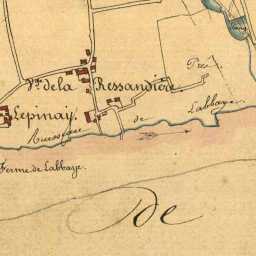 Vge de la Ressandière
Pré
Lepinay
Ruisseau de Labbaye
Ferme de Labbaye
de